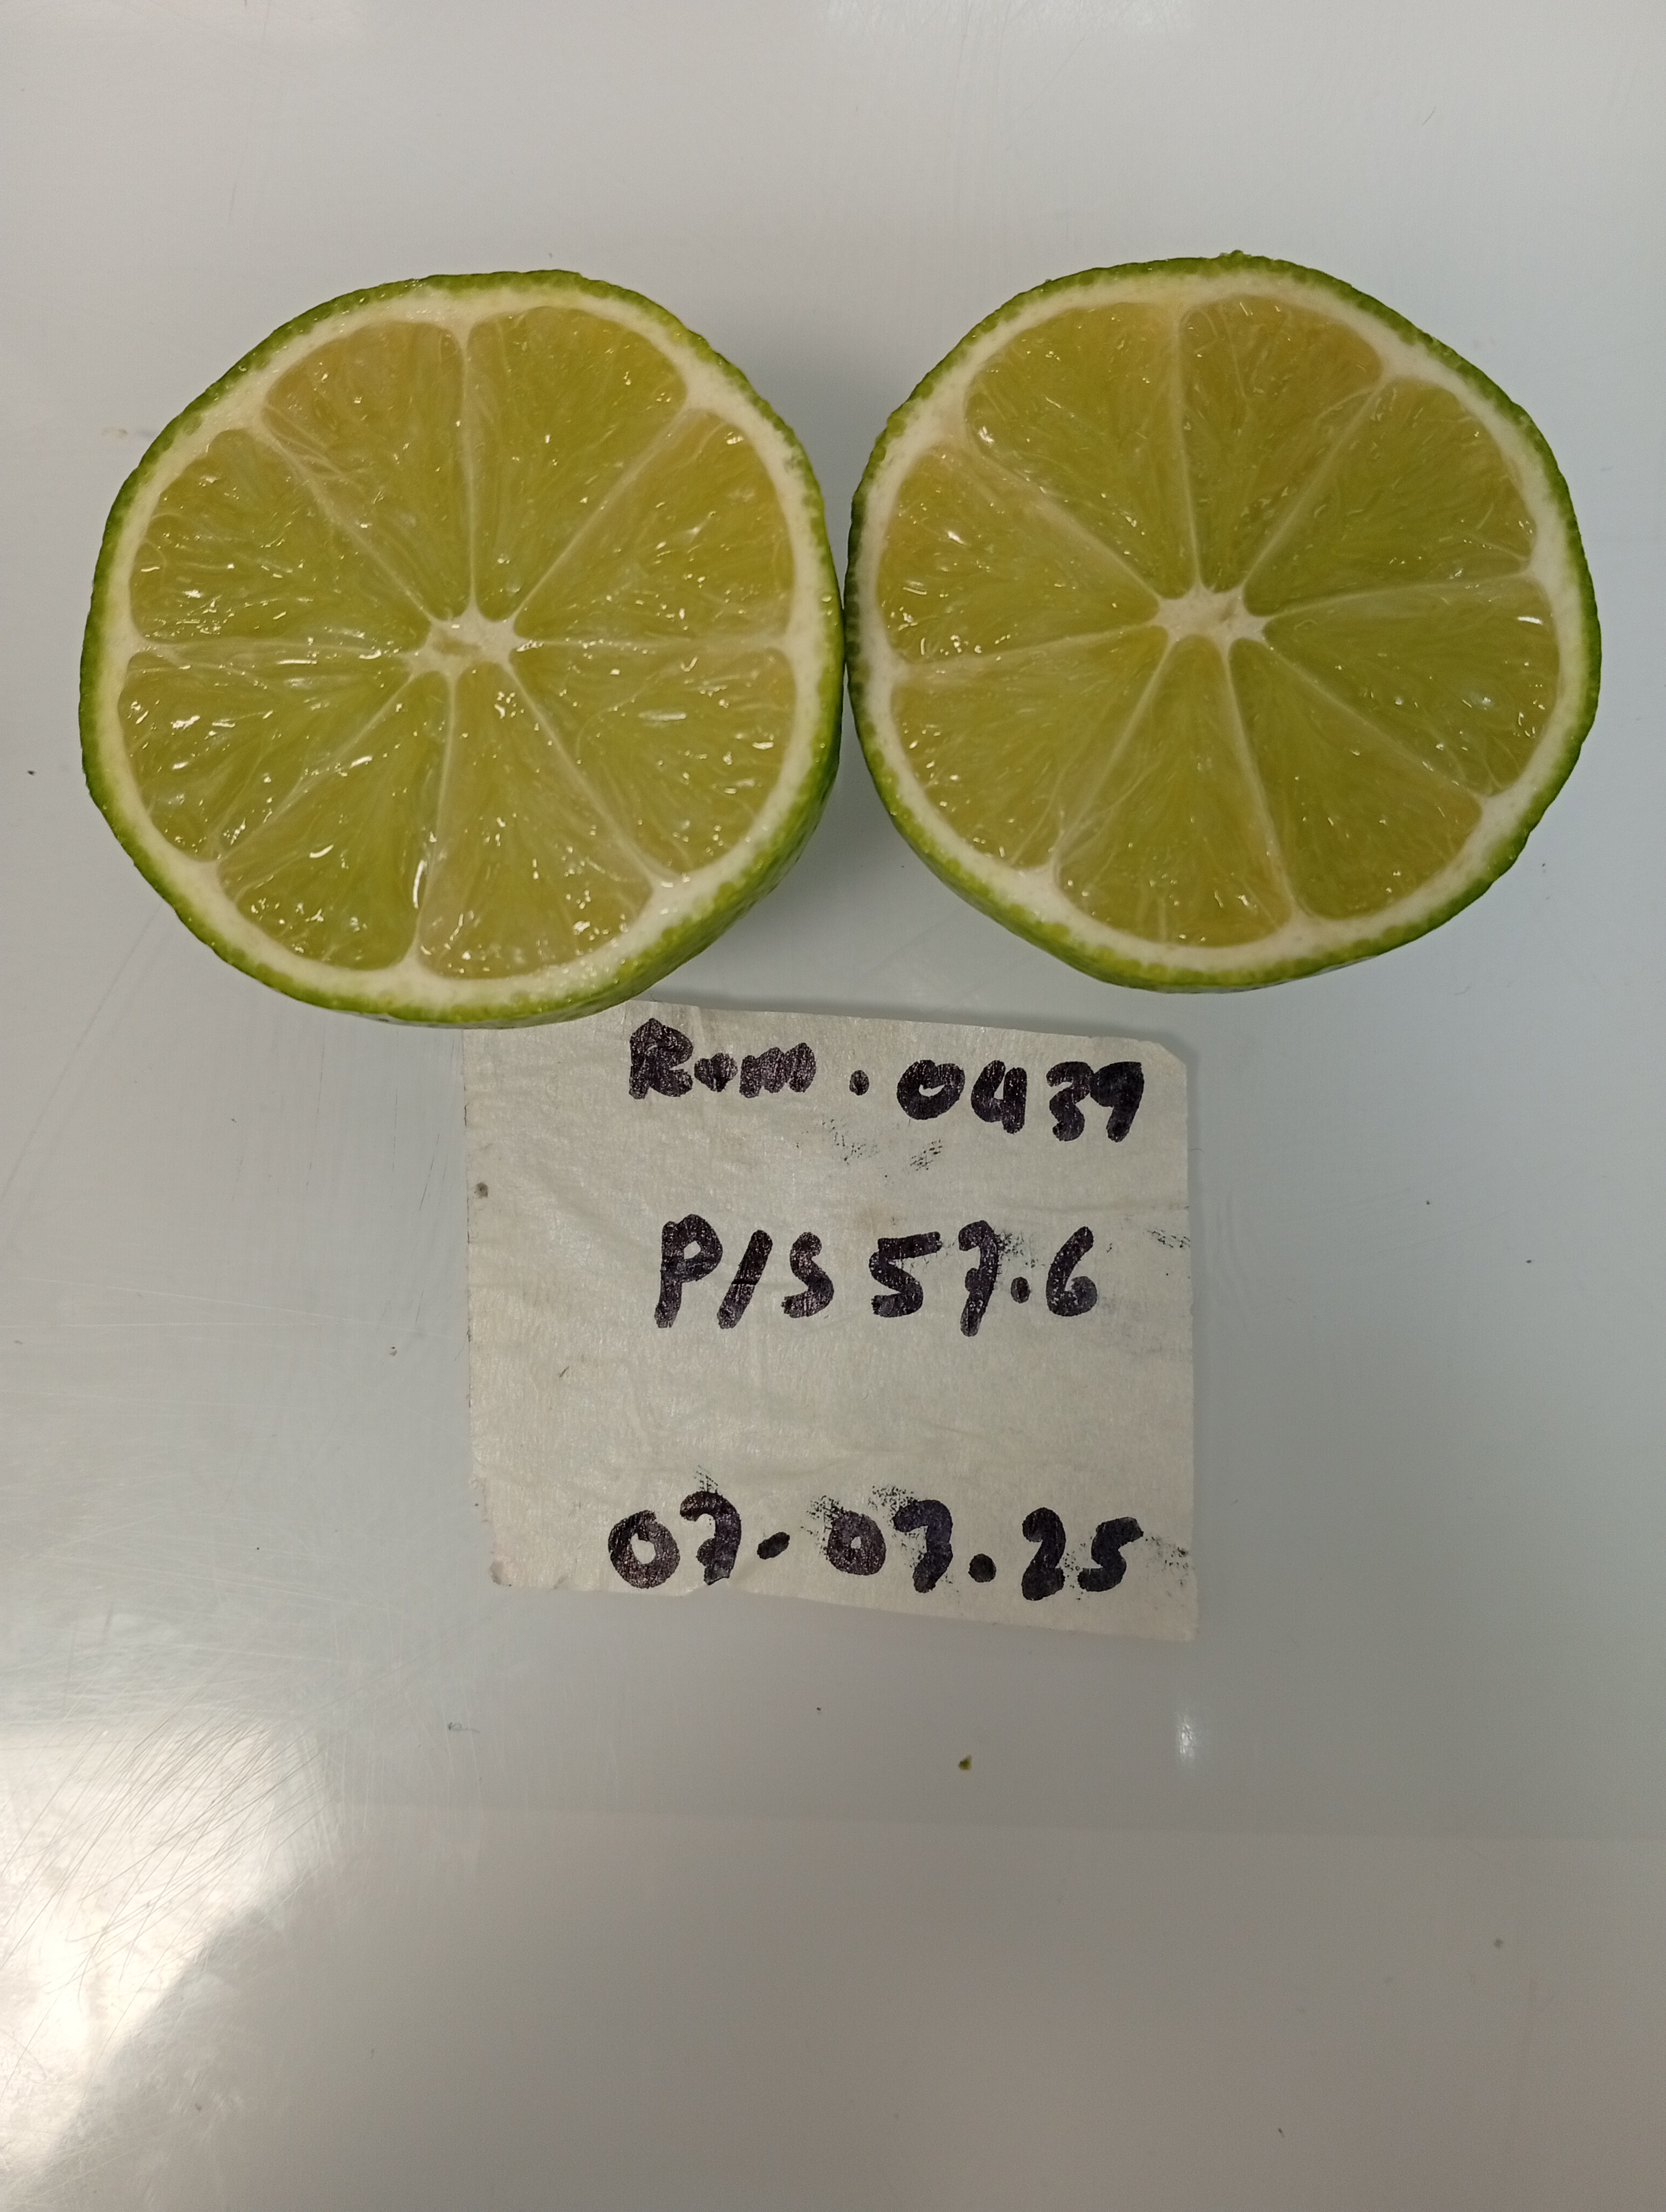 Rom. 0439
P/S 57.6
07-07.25